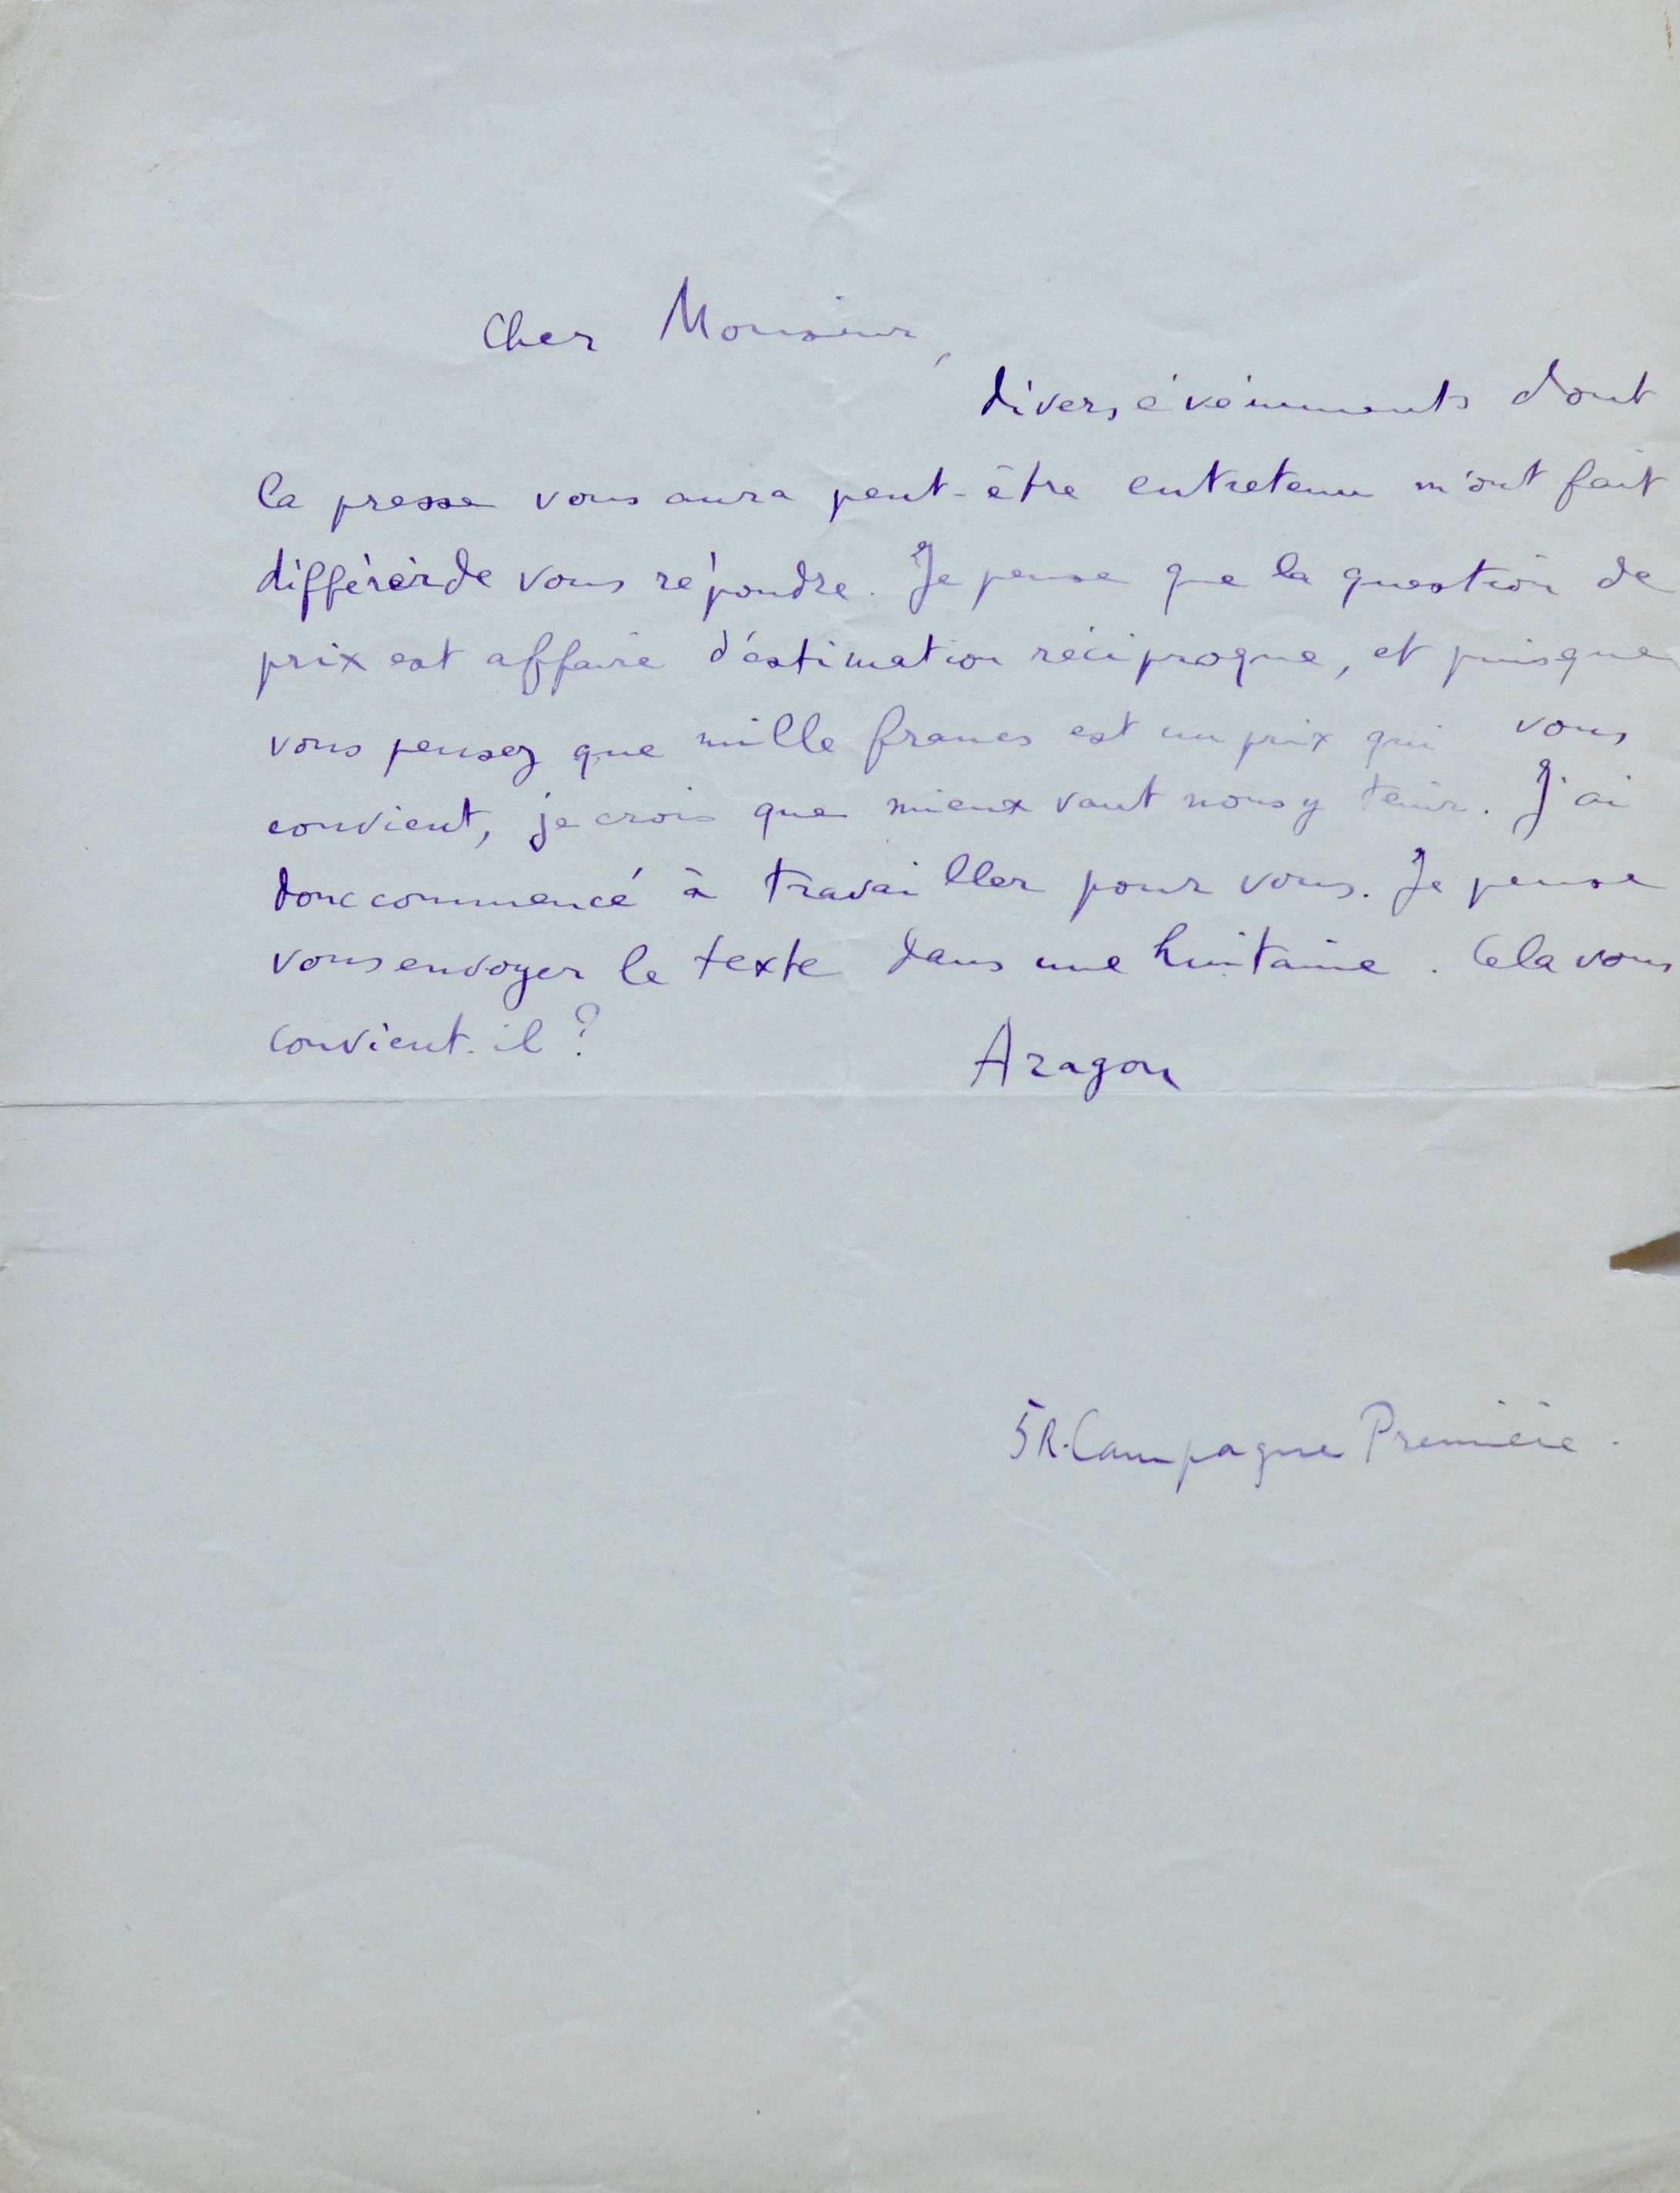 Cher Monsieur,
divers événements dont
la presse vous aura peut-être entretenu m'ont fait
différer de vous répondre. Je pense que la question de
prix est affaire d'estimation réciproque, et puisque
vous pensez que mille francs est un prix qui vous
convient, je crois que mieux vaut nous y tenir. J'ai
donc commencé à travailler pour vous. Je pense
vous envoyer le texte dans une huitaine. Cela vous
convient-il ?
Aragon
5 R. Campagne Première.